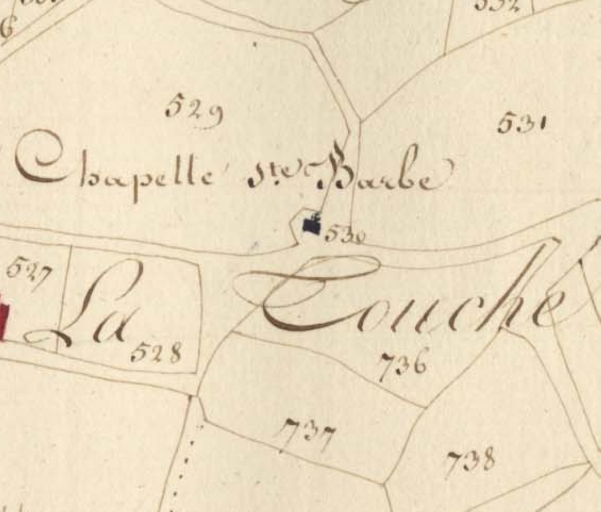 532
6
529
531
Chapelle Ste Barbe
530
527
La Touche
528
736
737
738